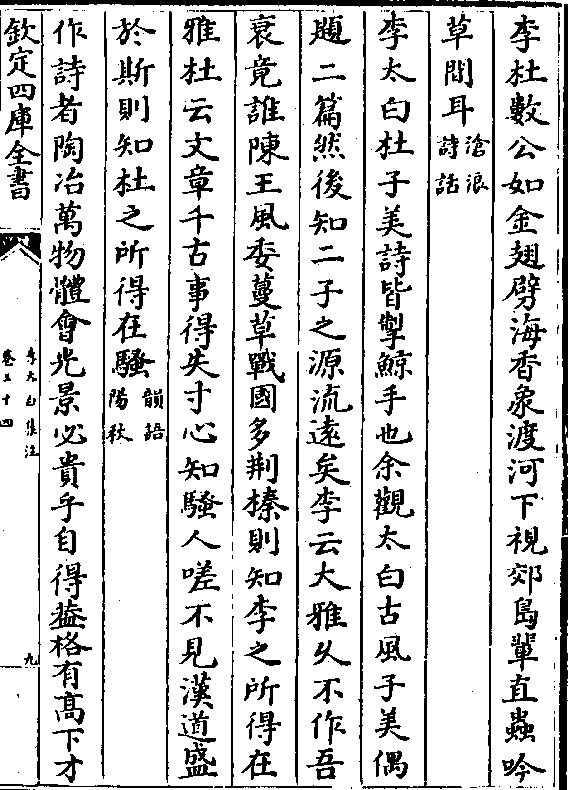 李杜數公如金翅劈海香象渡河下視郊島輩直蟲吟
草間耳滄浪詩話
李太白杜子美詩皆掣鯨手也余觀太白古風子美偶
題二篇然後知二子之源流遠矣李云大雅乆不作吾
衰竟誰陳王風委蔓草戰國多荆榛則知李之所得在
雅杜云文章千古事得失寸心知騷人嗟不見漢道盛
於斯則知杜之所得在騷韻語陽秋
作詩者陶冶萬物體會光景必貴乎自得葢格有髙下才
欽定四庫全書
李太白集注
卷三十四
九